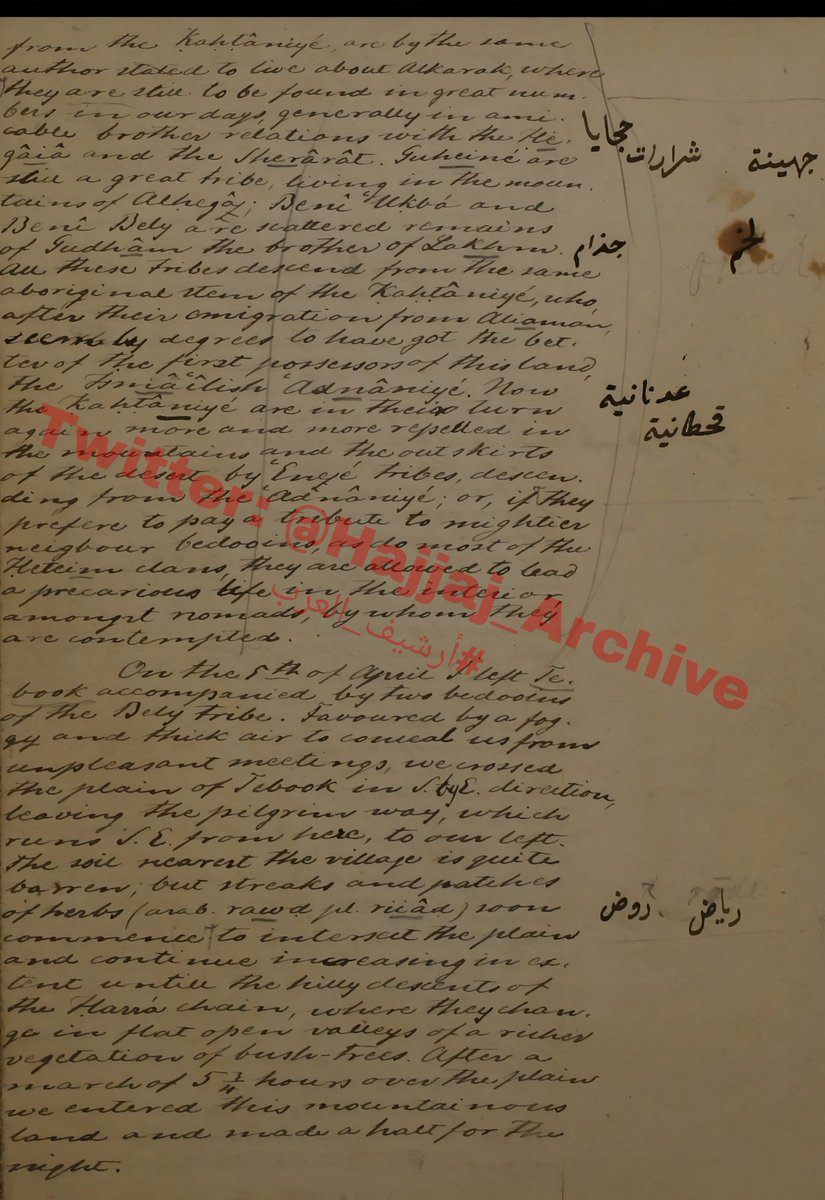 from the Kahtâniyé, are by the same
author stated to live about Alkarak, where
they are still to be found in great num-
bers in our days, generally in ami-
cable brother relations with the He-
gâiâ and the Sherârât. Guheiné are
still a great tribe, living in the moun-
tains of Alhegâz; Benî 'Ukbá and
Benî Bely are scattered remains
of Gudhâm the brother of Lakhm.
All these tribes descend from the same
aboriginal stem of the Kahtâniyé, who,
after their emigration from Aliaman,
seem by degrees to have got the bet-
ter of the first possessors of this land,
the Ismâ'îlish 'Adnâniyé. Now
the Kahtâniyé are in their turn
again more and more repelled in
the mountains and the outskirts
of the desert by 'Enezé tribes, descen-
ding from the 'Adnâniyé; or, if they
prefere to pay a tribute to mightier
neigbour bedooins, as do most of the
Heteim clans, they are allowed to lead
a precarious life in the interior
amongst nomads, by whom they
are contempted.
On the 5th of April I left Te-
book accompanied by two bedooins
of the Bely tribe. Favoured by a fog-
gy and thick air to conceal us from
unpleasant meetings, we crossed
the plain of Tebook in S. by E. direction,
leaving the pilgrim way, which
runs S. E. from here, to our left.
The soil nearest the village is quite
barren; but streaks and patches
of herbs (arab. rawd pl. riiâd) soon
commence to intersect the plain
and continue increasing in ex-
tent untill the hilly descents of
the Harrá chain, where they chan-
ge in flat open valleys of a richer
vegetation of bush-trees. After a
march of 5 3/4 hours over the plain
we entered this mountainous
land and made a halt for the
night.
حجايا
شرارات
جهينة
جذام
لخم
عدنانية
قحطانية
رياض . روض
Twitter: @Hajjaj_Archive
#أرشيف_العرب